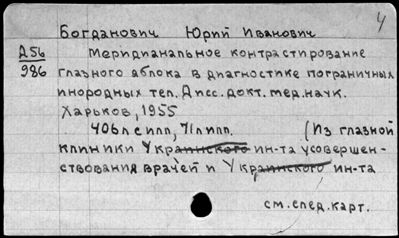 4
Богданович Юрий Иванович
Д56
986
Меридианальное контрастирование
глазного яблока в диагностике пограничных
инородных тел. Дисс. докт. мед. наук.
Харьков, 1955
406л с илл, 71л илл. (Из глазной
клиники Украинского ин-та усовершен-
ствования врачей и Украинского ин-та
см. след. карт.